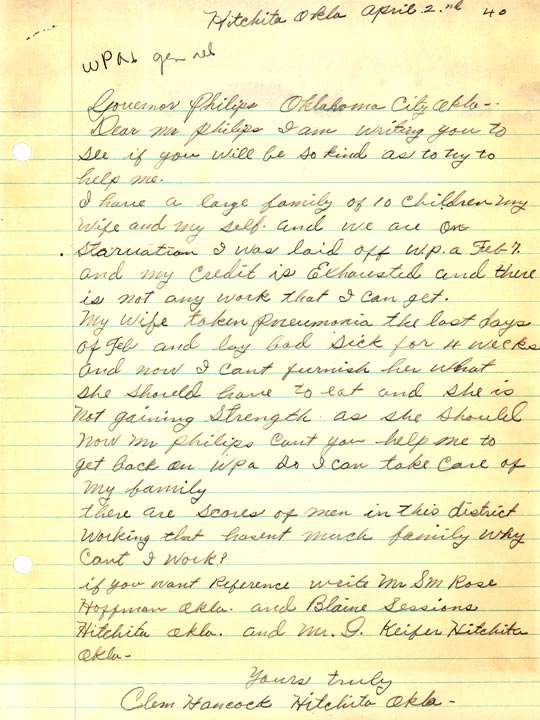 Hitchita Okla April 2.nd 40
WPA gen rel
Governor Philips Oklahoma City Okla-.
Dear Mr Philips I am writing you to
see if you will be so kind as to try to
help me.
I have a large family of 10 children my
wife and my self. and we are on
Starvation I was laid off W.P.a Feb 7.
and my credit is Exhausted and there
is not any work that I can get.
My Wife taken pneumonia the last days
of Feb and lay bad sick for 4 weeks
and now I cant furnish her what
she should have to eat and she is
not gaining Strength as she should
Now Mr Philips cant you help me to
get back on WPa so I can take care of
my family
there are scores of men in this district
working that havent much family why
cant I work?
if you want Reference write Mr SM Rose
Hoffman Okla. and Blaine Sessions
Hitchita Okla. and Mr. I. Keifer Hitchita
Okla-
Yours truly
Clem Hancock Hitchita Okla-